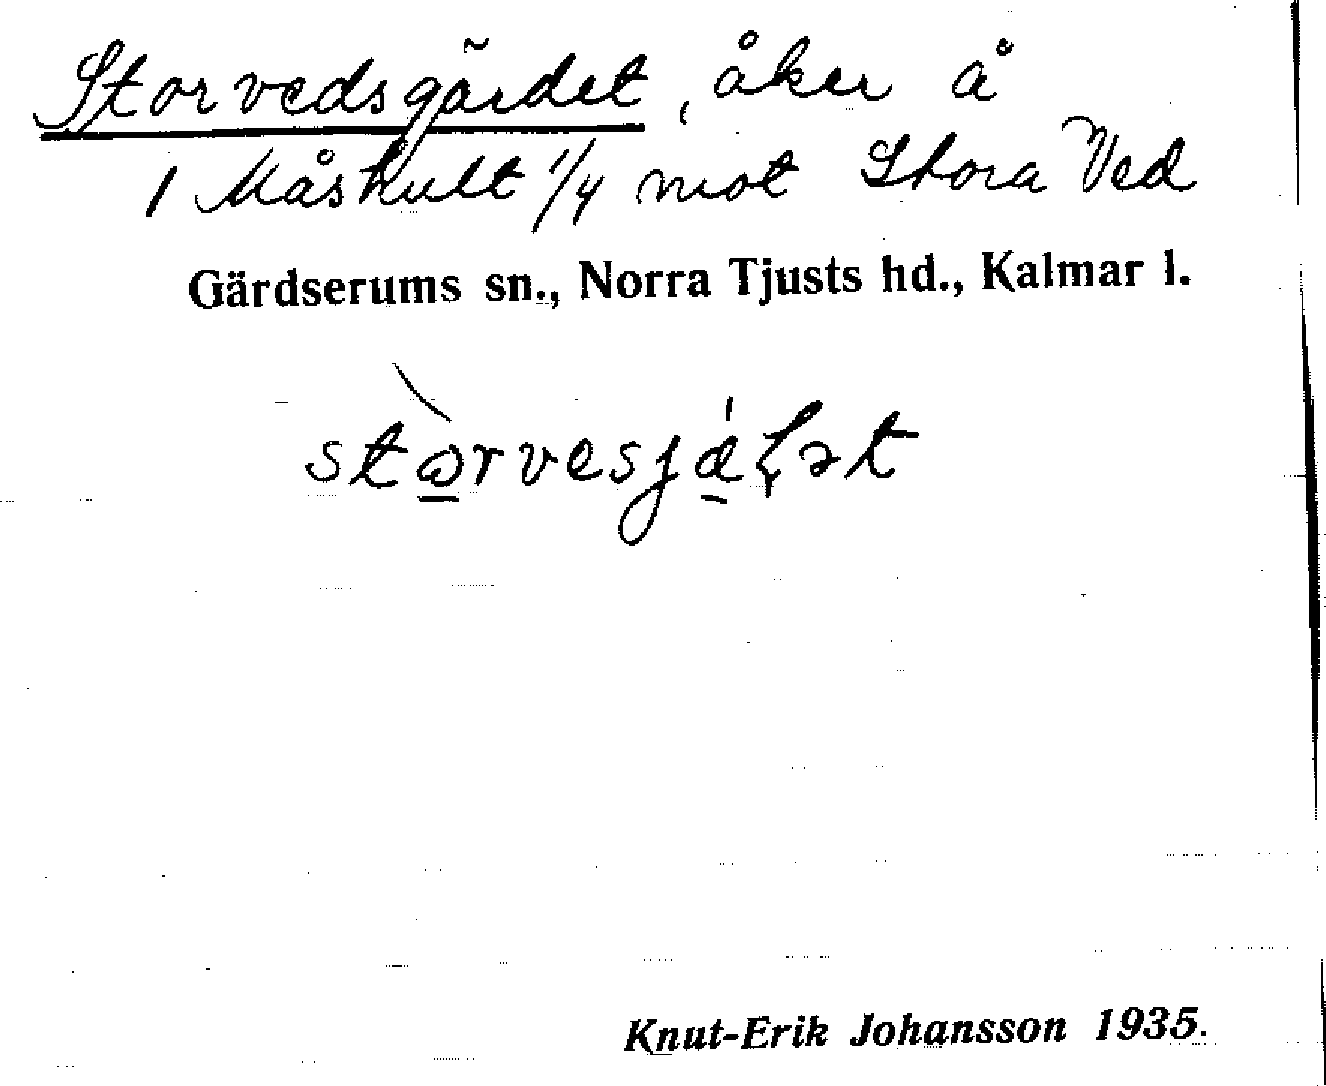 Storvedsgärdet, åker å
1 Måskult 1/4 mot Stora Ved
Gärdserums sn., Norra Tjusts hd., Kalmar l.
Knut-Erik Johansson 1935.